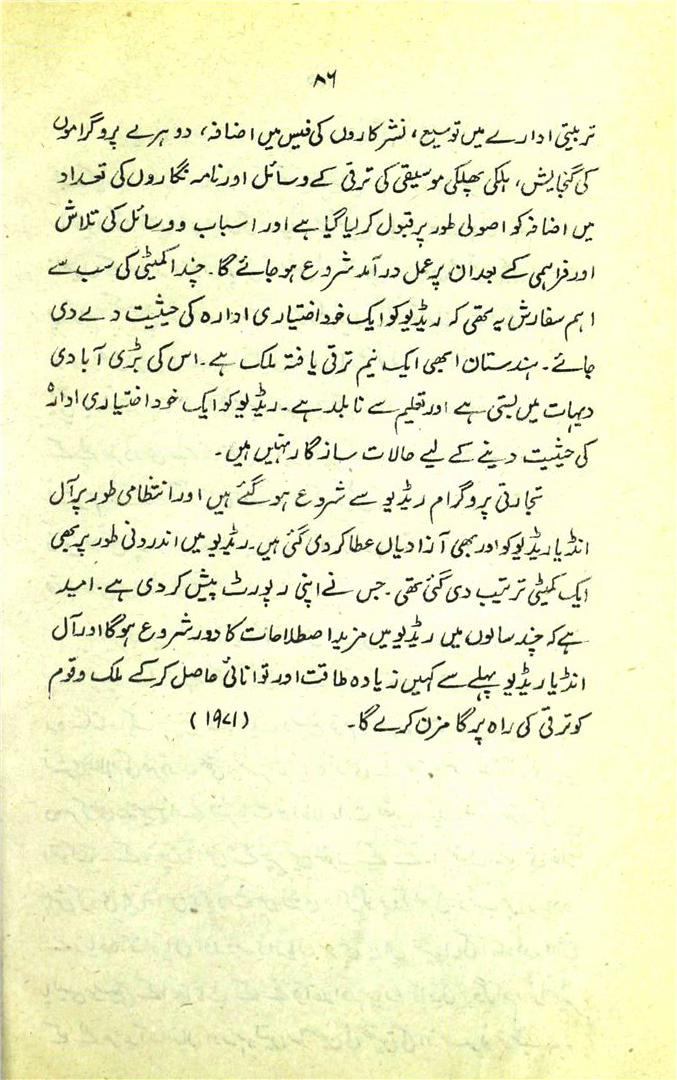 ۸۶
تربیتی ادارے میں توسیع، نشر کاروں کی فیس میں اضافہ، دوہرے پروگراموں
کی گنجایش، ہلکی پھلکی موسیقی کی ترقی کے وسائل اور نامہ نگاروں کی تعداد
میں اضافہ کو اصولی طور پر قبول کر لیا گیا ہے اور اسباب و وسائل کی تلاش
اور فراہمی کے بعد ان پر عمل درآمد شروع ہو جائے گا۔ چندا کمیٹی کی سب سے
اہم سفارش یہ تھی کہ ریڈیو کو ایک خود اختیاری ادارہ کی حیثیت دے دی
جائے۔ ہندستان ابھی ایک نیم ترقی یافتہ ملک ہے۔ اس کی بڑی آبادی
دیہات میں بستی ہے اور تعلیم سے نابلد ہے۔ ریڈیو کو ایک خود اختیاری ادارہ
کی حیثیت دینے کے لیے حالات سازگار نہیں ہیں۔
تجارتی پروگرام ریڈیو سے شروع ہو گئے ہیں اور انتظامی طور پر آل
انڈیا ریڈیو کو اور بھی آزادیاں عطا کر دی گئی ہیں۔ ریڈیو میں اندرونی طور پر بھی
ایک کمیٹی ترتیب دی گئی تھی۔ جس نے اپنی رپورٹ پیش کر دی ہے۔ امید
ہے کہ چند سالوں میں ریڈیو میں مزید اصطلاحات کا دور شروع ہوگا اور آل
انڈیا ریڈیو پہلے سے کہیں زیادہ طاقت اور توانائی حاصل کر کے ملک و قوم
کو ترقی کی راہ پر گامزن کرے گا۔ (۱۹۷۱)